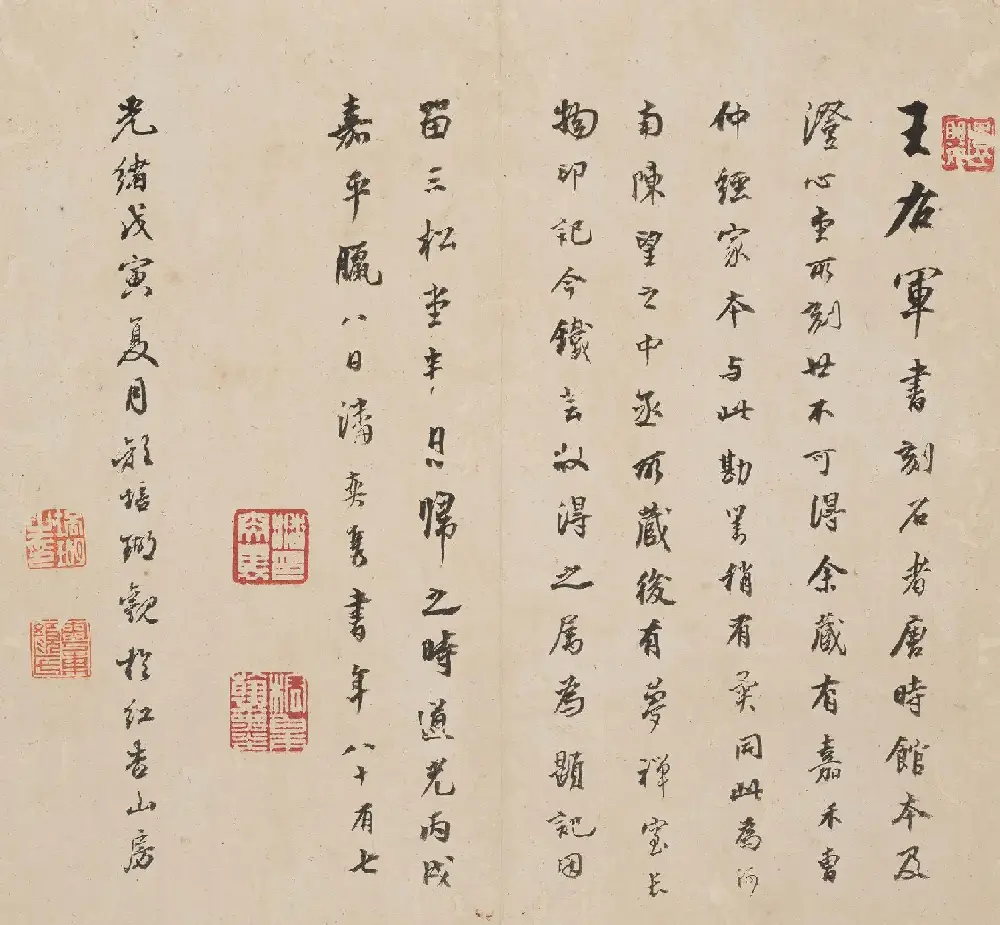 王右軍書刻石者唐時館本及
澄心堂所刻世不可得余藏有嘉禾曹
仲經家本与此勘業稍有異同此為河
南陳望之中丞所藏後有夢禪室長
物印記今鐵雲收得之属為題記因
留三松堂半月歸之時道光丙戌
嘉平臘八日潘奕雋書年八十有七
光緒戊寅夏月顏培瑚觀於紅杏山房